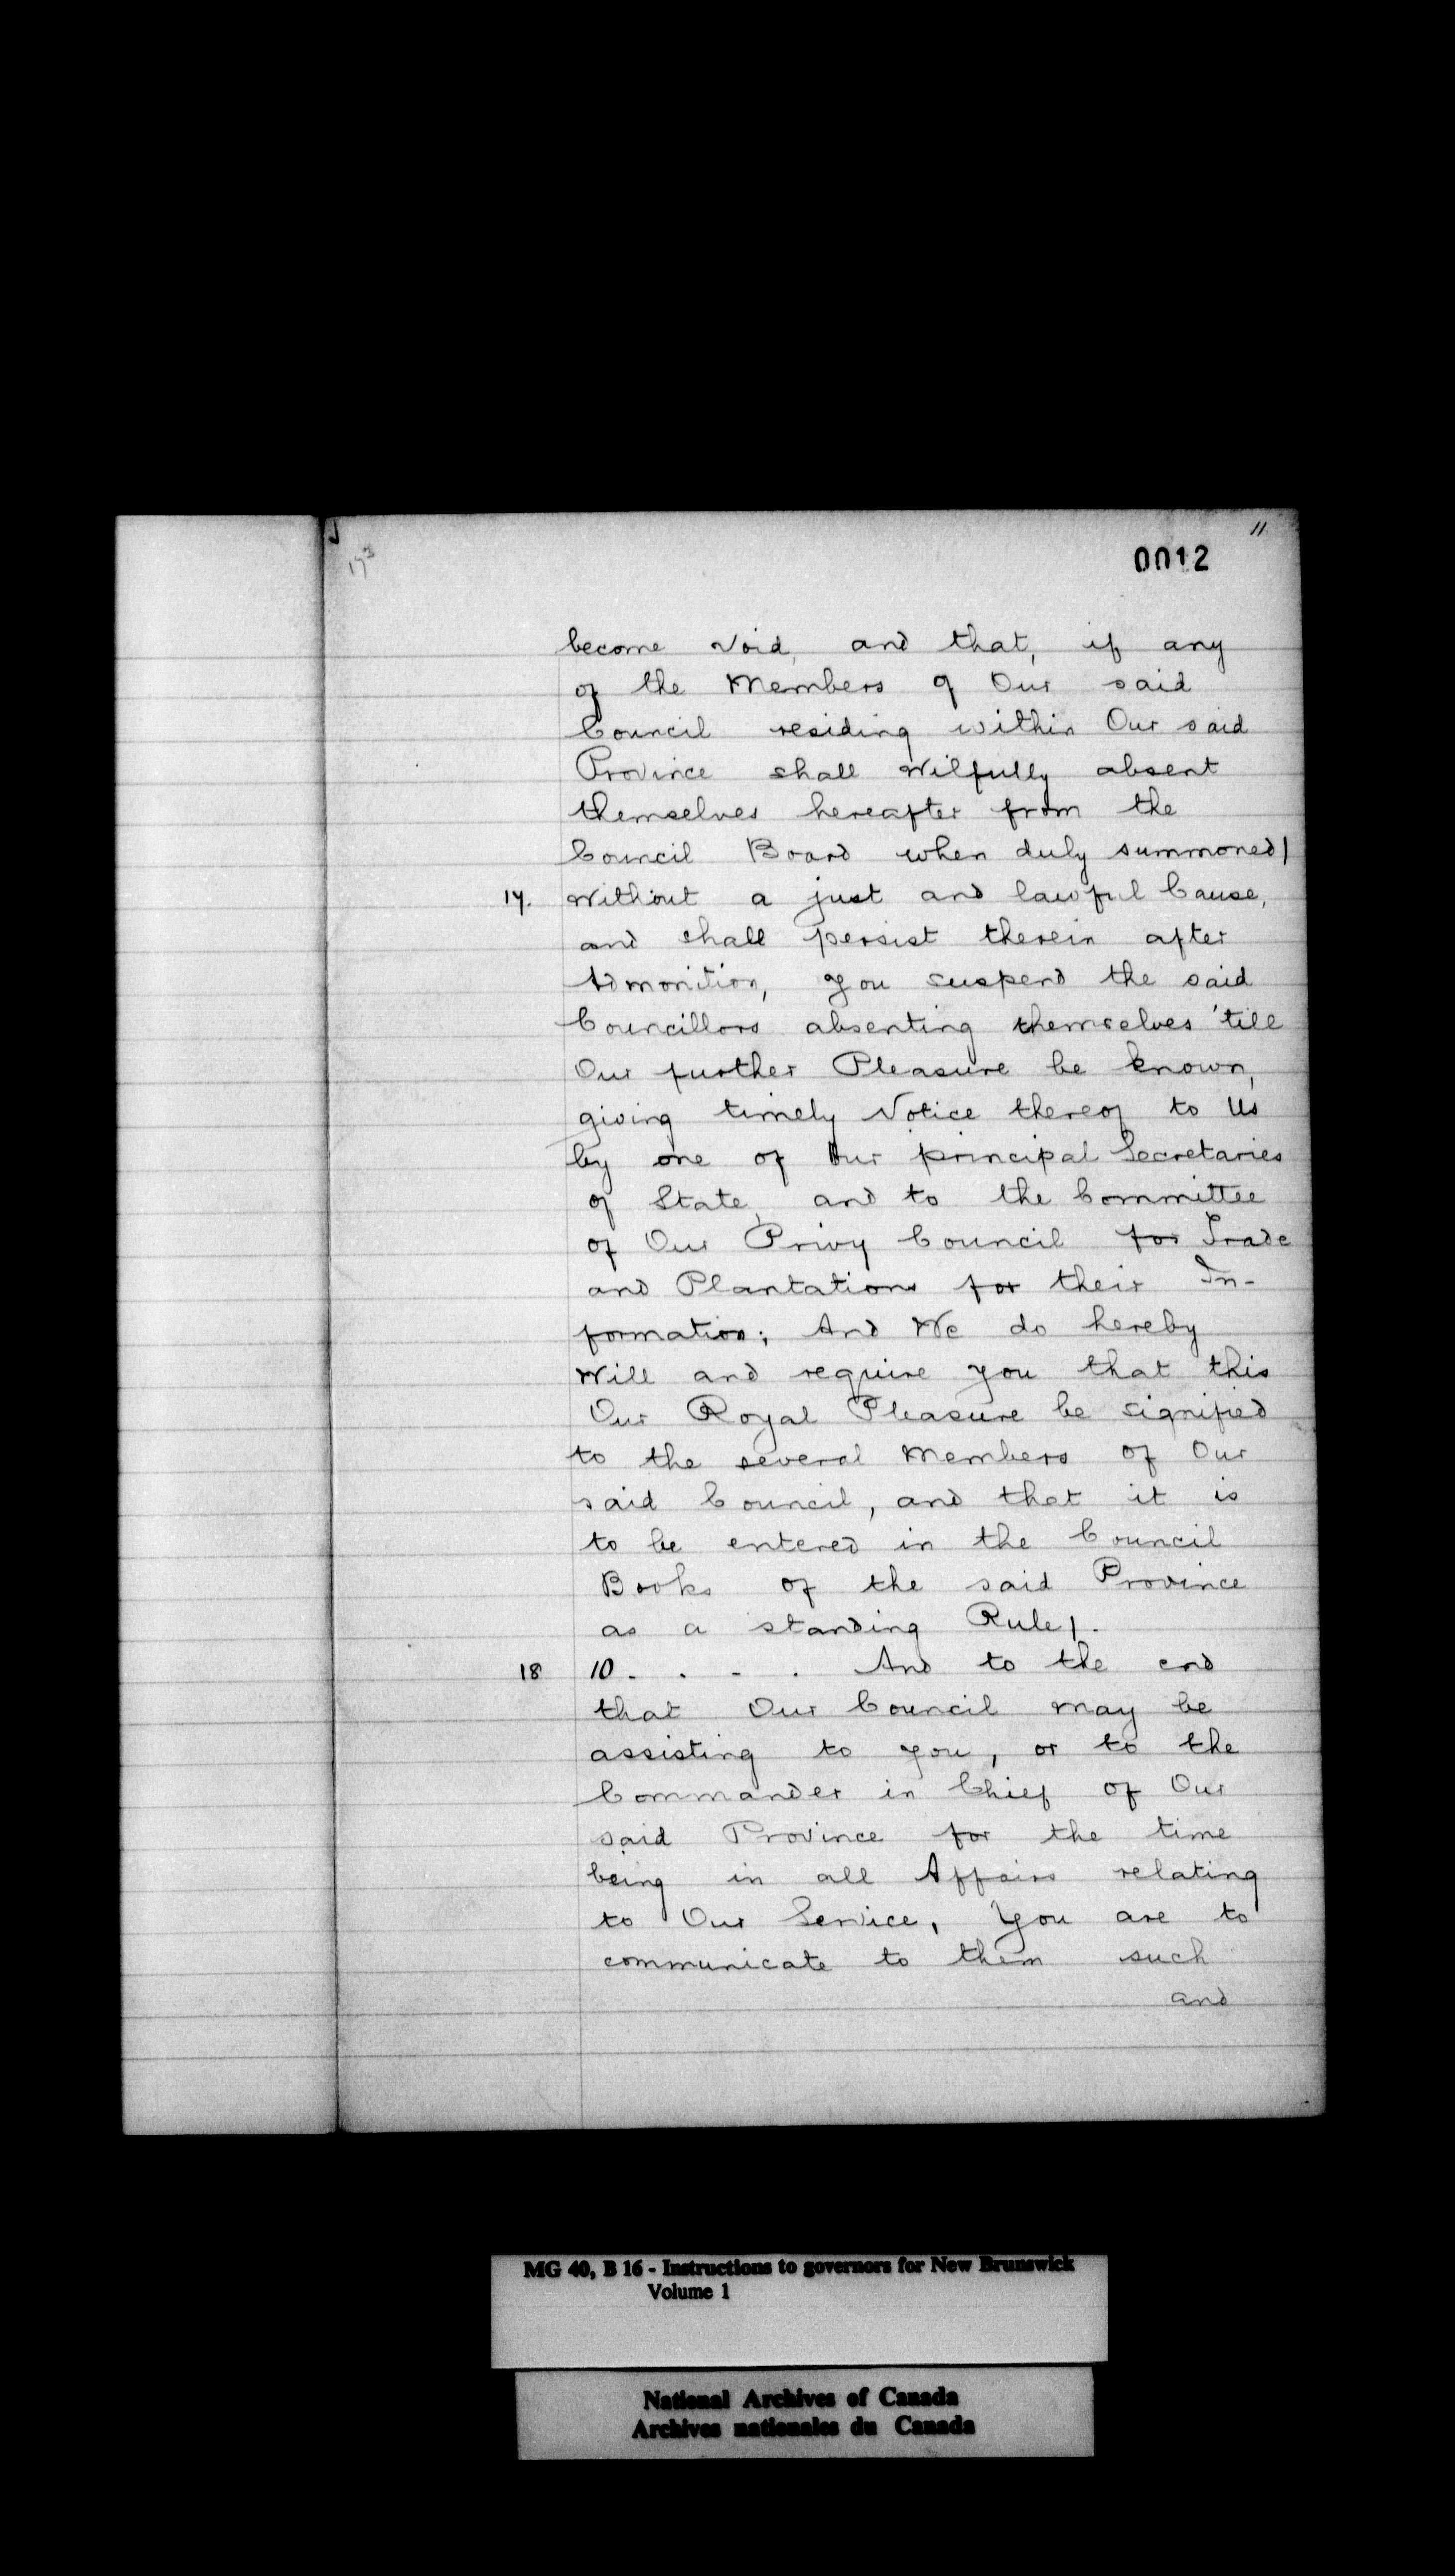 11
0012
173
become void, and that, if any
of the Members of Our said
Council residing within Our said
Province shall wilfully absent
themselves hereafter from the
Council Board when duly summoned|
17. without a just and lawful Cause,
and shall persist therein after
Admonition, you suspend the said
Councillors absenting themselves 'till
Our further Pleasure be known,
giving timely Notice thereof to Us
by one of Our principal Secretaries
of State, and to the Committee
of Our Privy Council for Trade
and Plantations for their In-
formation; And We do hereby
Will and require you that this
Our Royal Pleasure be signified
to the several Members of Our
said Council, and that it is
to be entered in the Council
Books of the said Province
as a standing Rule|.
18 10. . . . And to the end
that Our Council may be
assisting to you, or to the
Commander in Chief of Our
said Province for the time
being in all Affairs relating
to Our Service, You are to
communicate to them such
and
MG 40, B 16 - Instructions to governors for New Brunswick
Volume 1
National Archives of Canada
Archives nationales du Canada